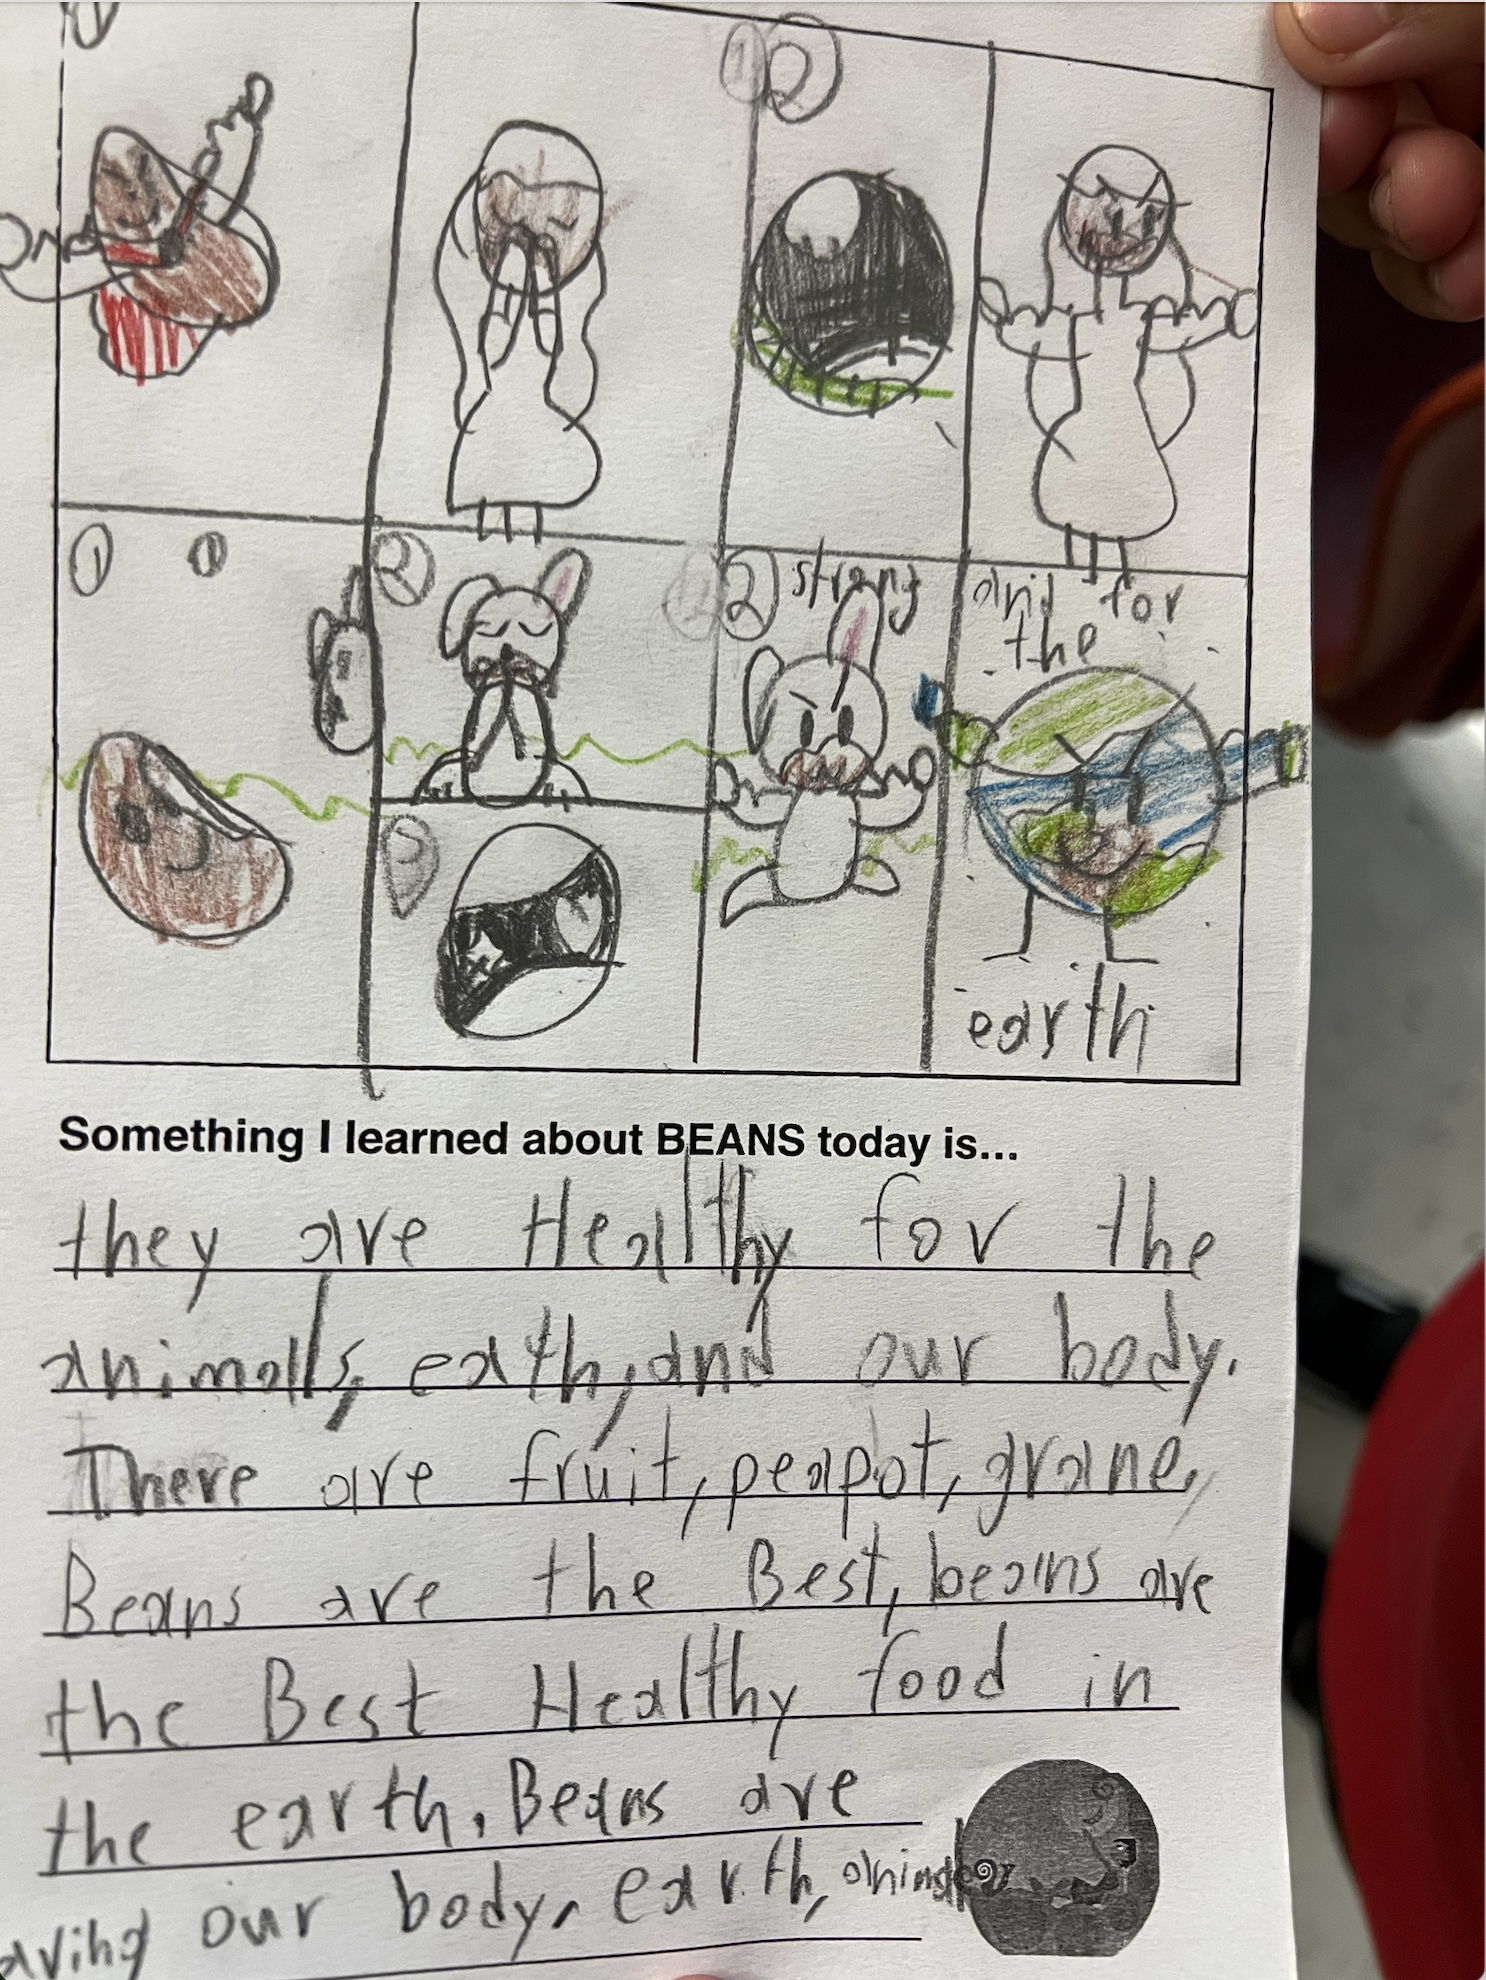 1
2
1
1
2
2
strong
and for
the
earth
Something I learned about BEANS today is...
they are Healthy for the
animalls, eath, and our body.
There are fruit, peapot, grane,
Beans are the Best, beains are
the Best Healthy food in
the earth. Beans are
our body, earth,